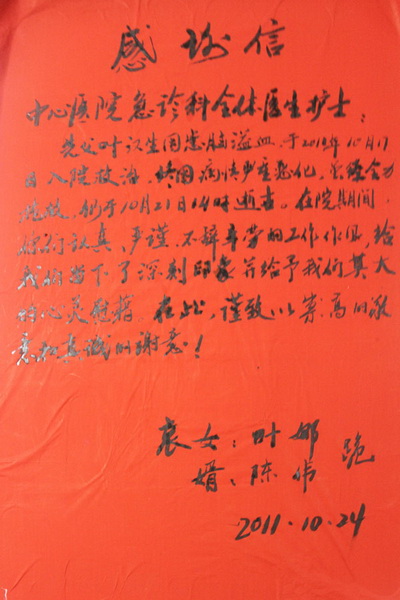 感谢信
中心医院急诊科全体医生护士：
先父叶汉生因患脑溢血，于2011年10月17
日入院救治，终因病情严重恶化，虽经全力
抢救，仍于10月21日14时逝去。在院期间，
你们认真、严谨、不辞辛劳的工作作风，给
我们留下了深刻印象并给予我们莫大
的心灵慰藉。在此，谨致以崇高的敬
意和真诚的谢意！
哀女：叶娜
婿：陈伟 跪
2011.10.24